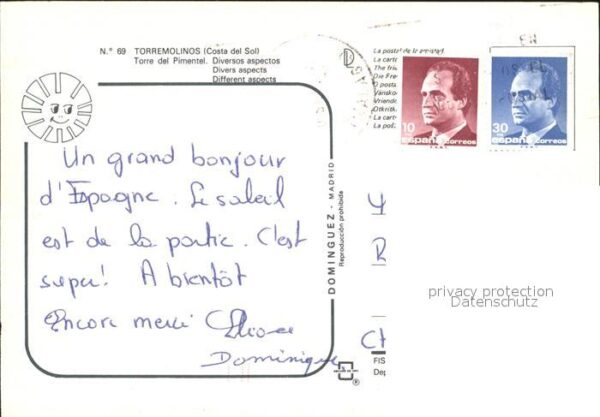 N.º 69 TORREMOLINOS (Costa del Sol)
Torre del Pimentel. Diversos aspectos
Divers aspects
Different aspects
Un grand bonjour
d'Espagne. Le soleil
est de la partie. C'est
super! A bientôt
Encore merci
Dominique
DOMINGUEZ - MADRID
Reproducción prohibida
La postal de la amistad
La carte
The frie
Die Fre
O posta
Vänsko
Vriende
Otkritk
La cart
La pož
10
españa correos
30
españa correos
privacy protection
Datenschutz
FIS
Dep
®